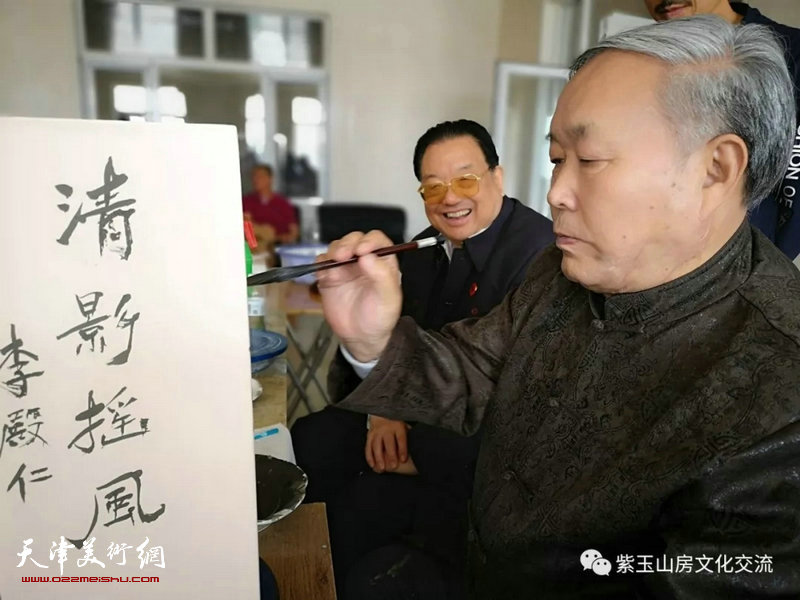 清影摇風
李殿仁
天津美術網
www.022meishu.com
紫玉山房文化交流
HION OF